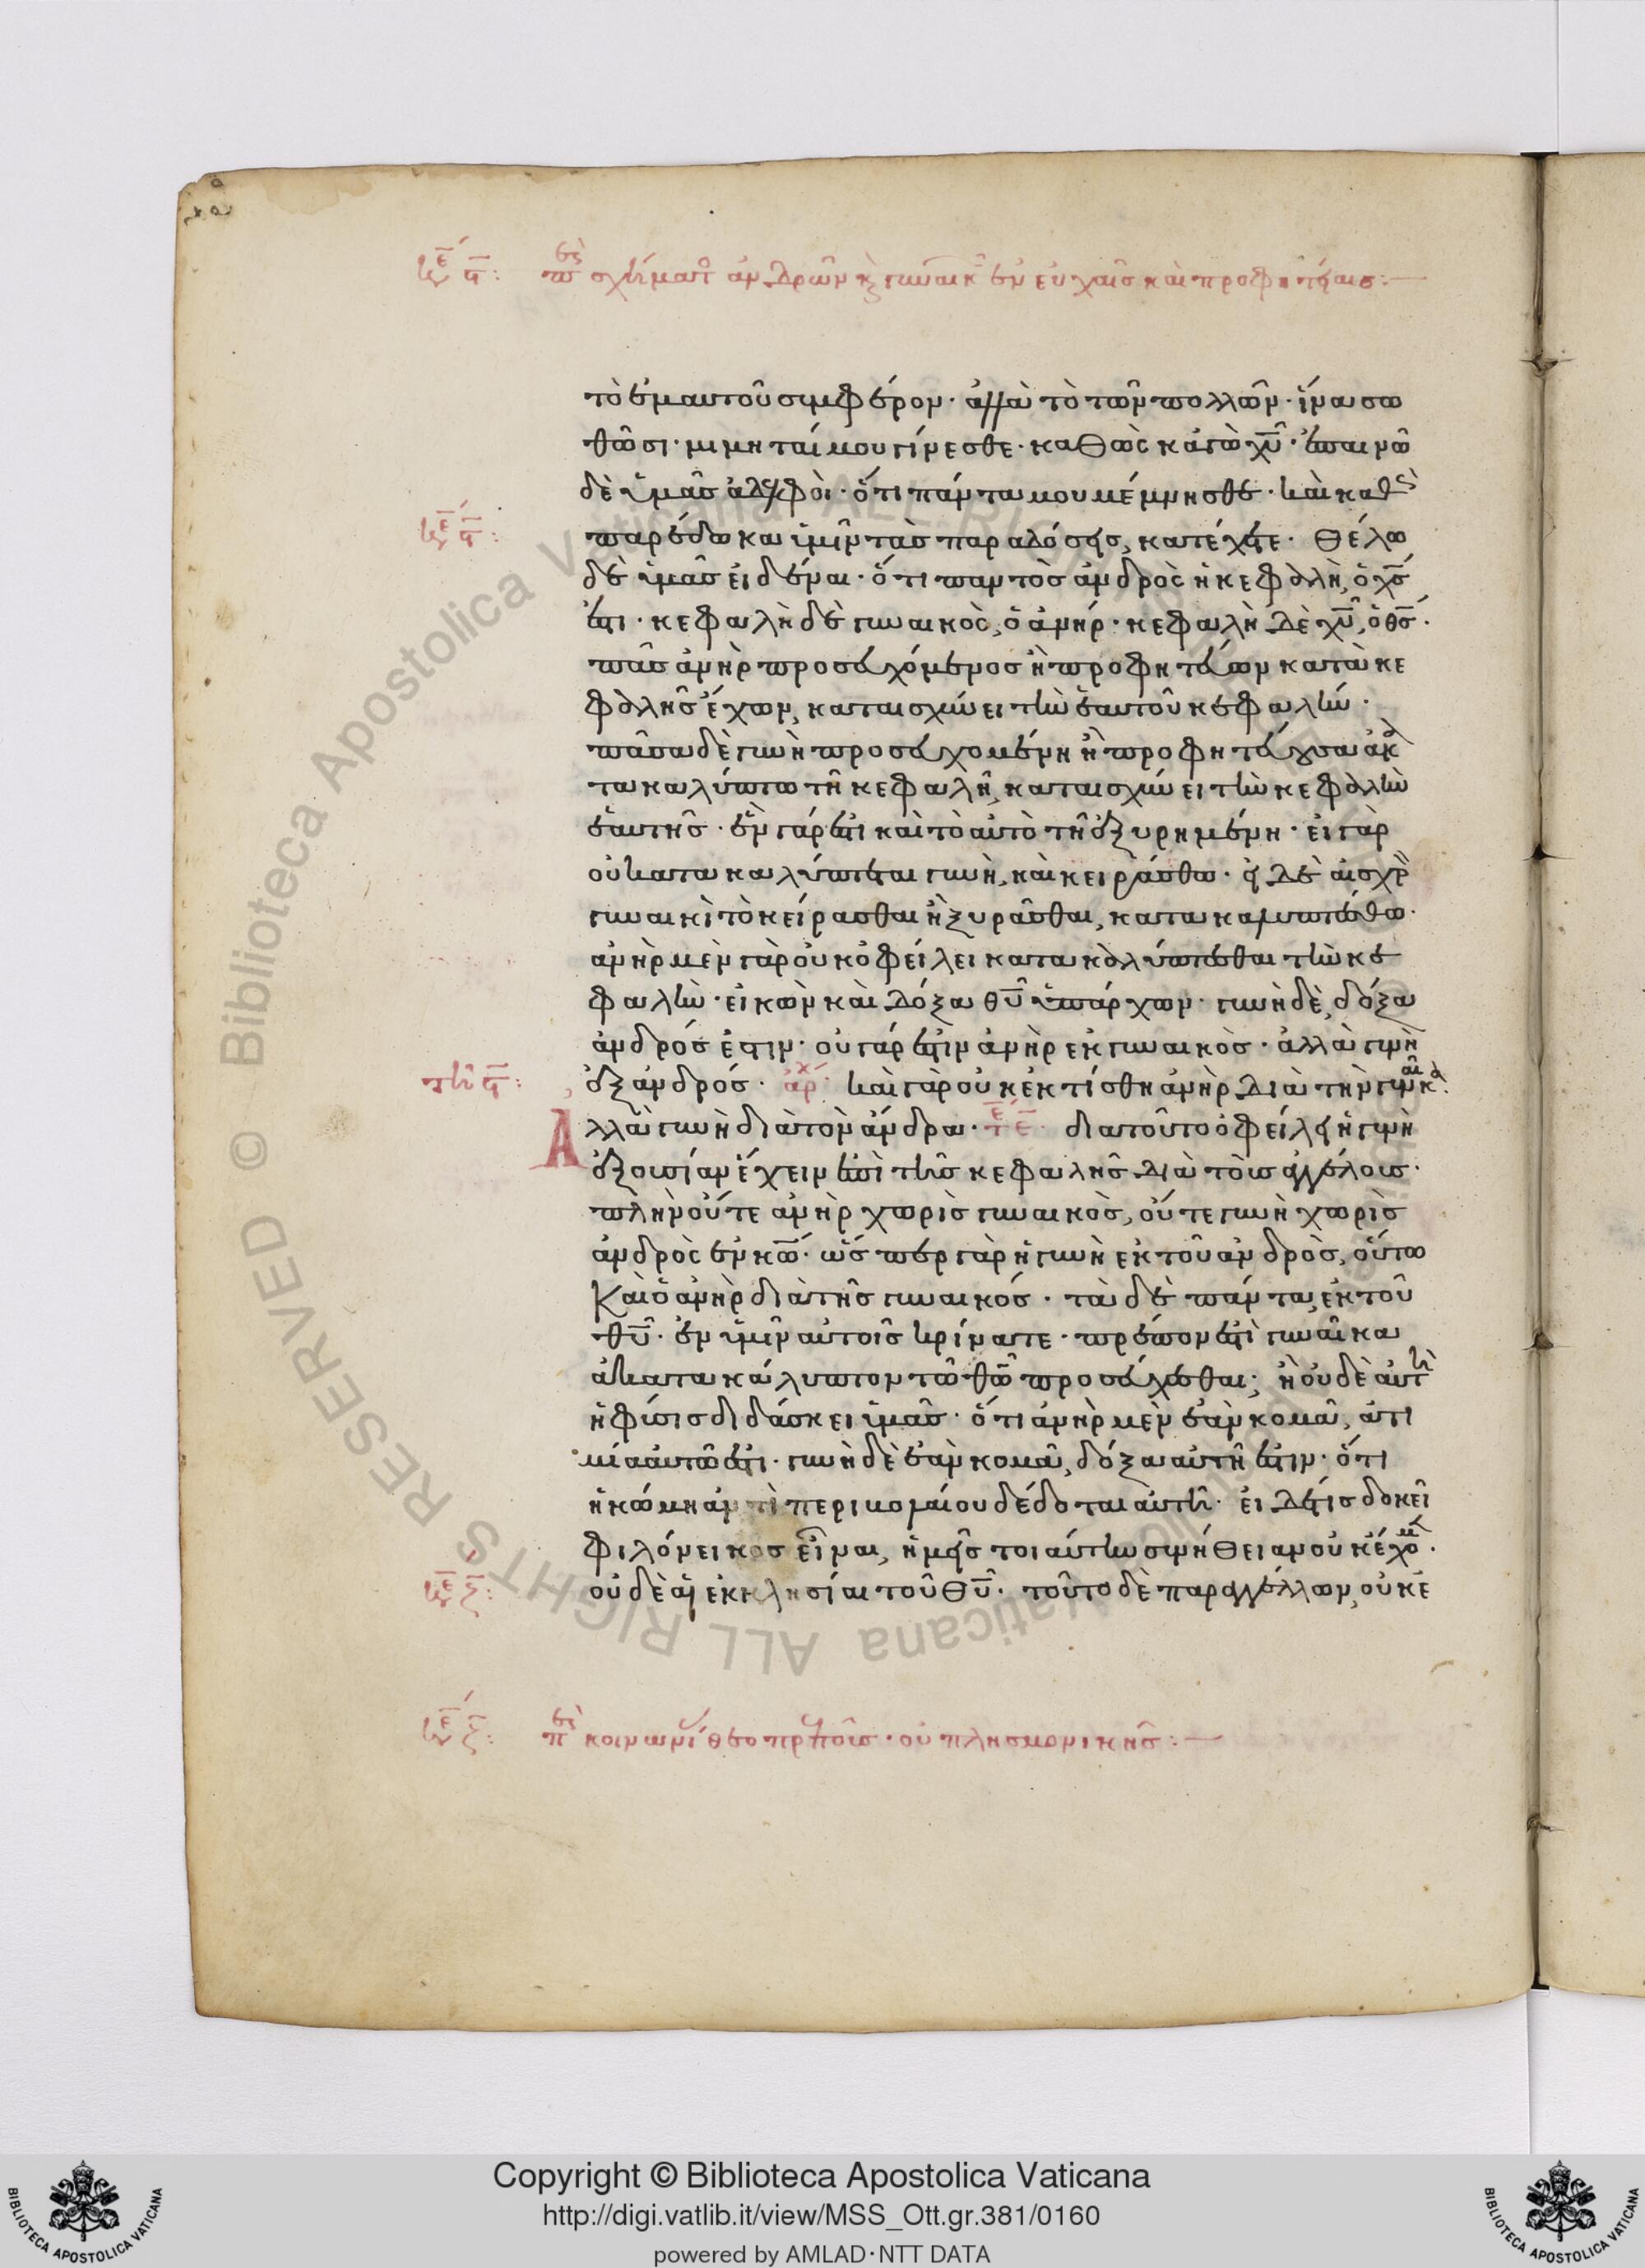 κε ϛ: περὶ σχήματος ἀνδρῶν κ γυναικ ἐν εὐχαῖς καὶ προφητείαις:—
τὸ ἐμαυτοῦ συμφέρον· ἀλλὰ τὸ τῶν πολλῶν· ἵνα σω
θῶσι· μιμηταί μου γίνεσθε· καθὼς κἀγὼ χῡ· ἐπαινῶ
δὲ ὑμᾶς ἀδελφοὶ· ὅτι πάντα μου μέμνησθε· καὶ καθὼς
παρέδωκα ὑμῖν τὰς παραδόσεις, κατέχετε· Θέλω
δὲ ὑμᾶς εἰδέναι· ὅτι παντὸς ἀνδρὸς ἡ κεφαλὴ, ὁ χς̄
ἐστι· κεφαλὴ δὲ γυναικὸς, ὁ ἀνήρ· κεφαλὴ δὲ χῡ, ὁ θς̄·
πᾶς ἀνὴρ προσευχόμενος ἢ προφητεύων κατὰ κε
φαλῆς ἔχων, καταισχύνει τὴν ἑαυτοῦ κεφαλήν·
πᾶσα δὲ γυνὴ προσευχομένη ἢ προφητεύουσα ἀκα
τακαλύπτω τῇ κεφαλῇ, καταισχύνει τὴν κεφαλὴν
ἑαυτῆς· ἓν γάρ ἐστι καὶ τὸ αὐτὸ τῇ ἐξυρημένη· εἰ γὰρ
οὐ κατακαλύπτεται γυνὴ, καὶ κειράσθω· εἰ δὲ αἰσχρὸν
γυναικὶ τὸ κείρασθαι ἢ ξυρᾶσθαι, κατακαλυπτέσθω·
ἀνὴρ μὲν γὰρ οὐκ ὀφείλει κατακαλύπτεσθαι τὴν κε
φαλὴν· εἰκὼν καὶ δόξα θῡ ὑπάρχων· γυνὴ δὲ, δόξα
ἀνδρός ἐστιν· οὐ γάρ ἐστιν ἀνὴρ ἐκ γυναικὸς· ἀλλὰ γυνὴ
ἐξ ἀνδρός· ἀρχ· καὶ γὰρ οὐκ ἐκτίσθη ἀνὴρ διὰ τὴν γυναῖκα·
Ἀλλὰ γυνὴ διὰ τὸν ἄνδρα· διατοῦτο ὀφείλει ἡ γυνὴ
ἐξουσίαν ἔχειν ἐπὶ τῆς κεφαλῆς διὰ τοὺς ἀγγέλους·
πλὴν οὔτε ἀνὴρ χωρὶς γυναικὸς, οὔτε γυνὴ χωρὶς
ἀνδρὸς ἐν κω̄· ὥσπερ γὰρ ἡ γυνὴ ἐκ τοῦ ἀνδρὸς, οὕτω
Καὶ ὁ ἀνὴρ διὰ τῆς γυναικός· τὰ δὲ πάντα, ἐκ τοῦ
θῡ· ἐν ὑμῖν αὐτοῖς κρίνατε· πρέπον ἐστὶ γυναῖκα
ἀκατακάλυπτον τῶ θω̄ προσεύχεσθαι; ἢ οὐδὲ αὐτὴ
ἡ φύσις διδάσκει ὑμᾶς· ὅτι ἀνὴρ μὲν ἐὰν κομᾶ, ἀτι
μία αὐτῶ ἐστι· γυνὴ δὲ ἐὰν κομᾶ, δόξα αὐτῆ ἐστιν· ὅτι
ἡ κόμη ἀντὶ περιβολαίου δέδοται αὐτῆ· εἰ δέ τις δοκεῖ
φιλόνεικος εἶναι, ἡμεῖς τοιαύτην συνήθειαν οὐκ ἔχομεν·
οὐδὲ αἱ ἐκκλησίαι τοῦ θῡ· τοῦτο δὲ παραγγέλλων, οὐκ ἐ
κε ζ: περὶ κοινωνί θεοπρεποῦς· οὐ πλησμονικῆς:—